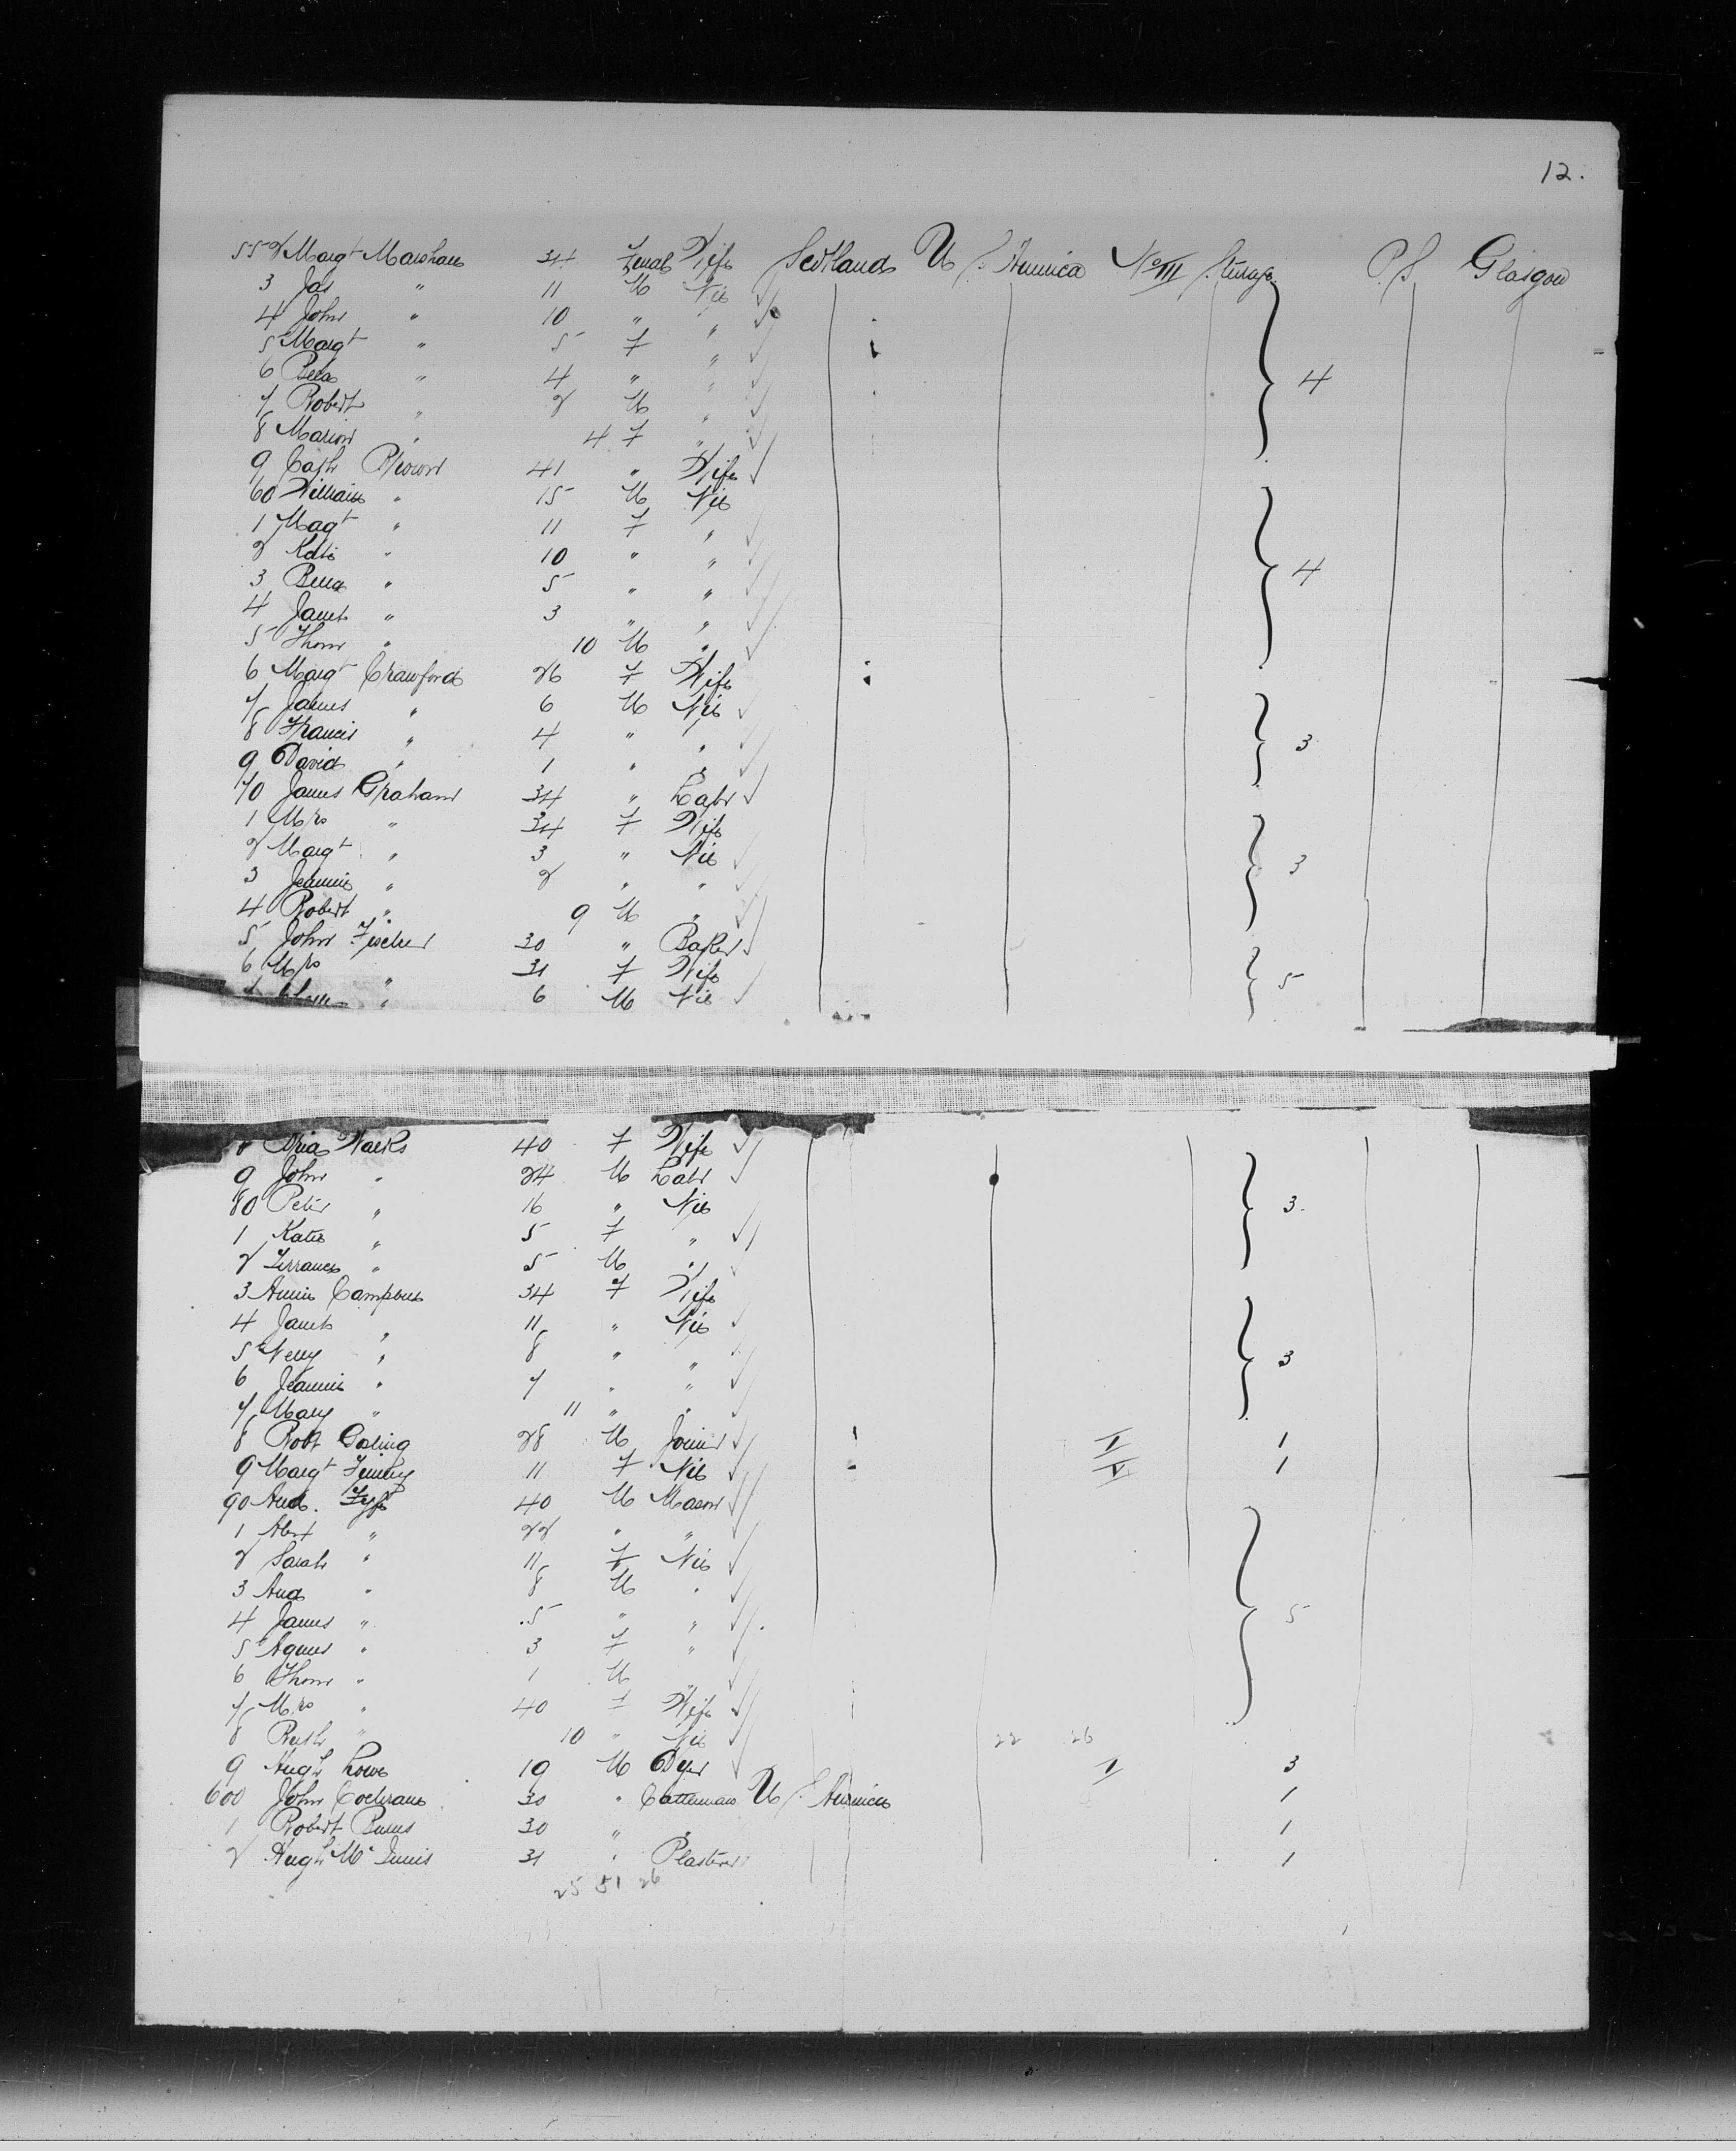 12.
552 Margt Marshall 34 Female Wife Scotland U S. America No III Steerage P.S. Glasgow
3 Jas " 11 M Nil
4 John " 10 " "
5 Margt " 5 F "
6 Bella " 4 " " 4
7 Robert " 2 M "
8 Marion " 4 F "
9 Cath Brown 41 " Wife
60 William " 15 M Nil
1 Magt " 11 F "
2 Katie " 10 " "
3 Bella " 5 " " 4
4 Janet " 3 " "
5 Thom " 10 M "
6 Margt Crawford 26 F Wife
7 James " 6 M Nil
8 Francis " 4 " " 3
9 David " 1 " "
70 James Graham 34 " Labr
1 Mrs " 34 F Wife
2 Margt " 3 " Nil
3 Jeannie " 2 " " 3
4 Robert " 9 M "
5 John Fischer 30 " Baker
6 Mrs " 31 F Wife
" 6 M Nil 5
Walks 40 F Wife
9 John " 24 M Labr
80 Peter " 16 " Nil 3.
1 Katie " 5 F "
2 Terrance " 5 M "
3 Annie Campbell 34 F Wife
4 Janet " 11 " Nil
5 Nelly " 8 " " 3
6 Jeannie " 7 " "
7 Mary " 11 " "
8 Robt Gosling 28 M Joiner I 1
9 Margt 11 F Nil IV 1
90 And. Fyfe 40 M Mason
1 Alex " 22 " "
2 Sarah " 11 F Nil
3 And " 8 M "
4 James " 5 " " 5
5 Agnes " 3 F "
6 Thom " 1 M "
7 Mrs " 40 F Wife
8 Ruth " 10 " Nil 22 26
9 Hugh Lowe 19 M Dyer I 3
600 John Cochrane 30 " Cattleman U S. America 1
1 Robert Burns 30 " " 1
2 Hugh Mc Innis 31 " Plasterer 1
25 51 26